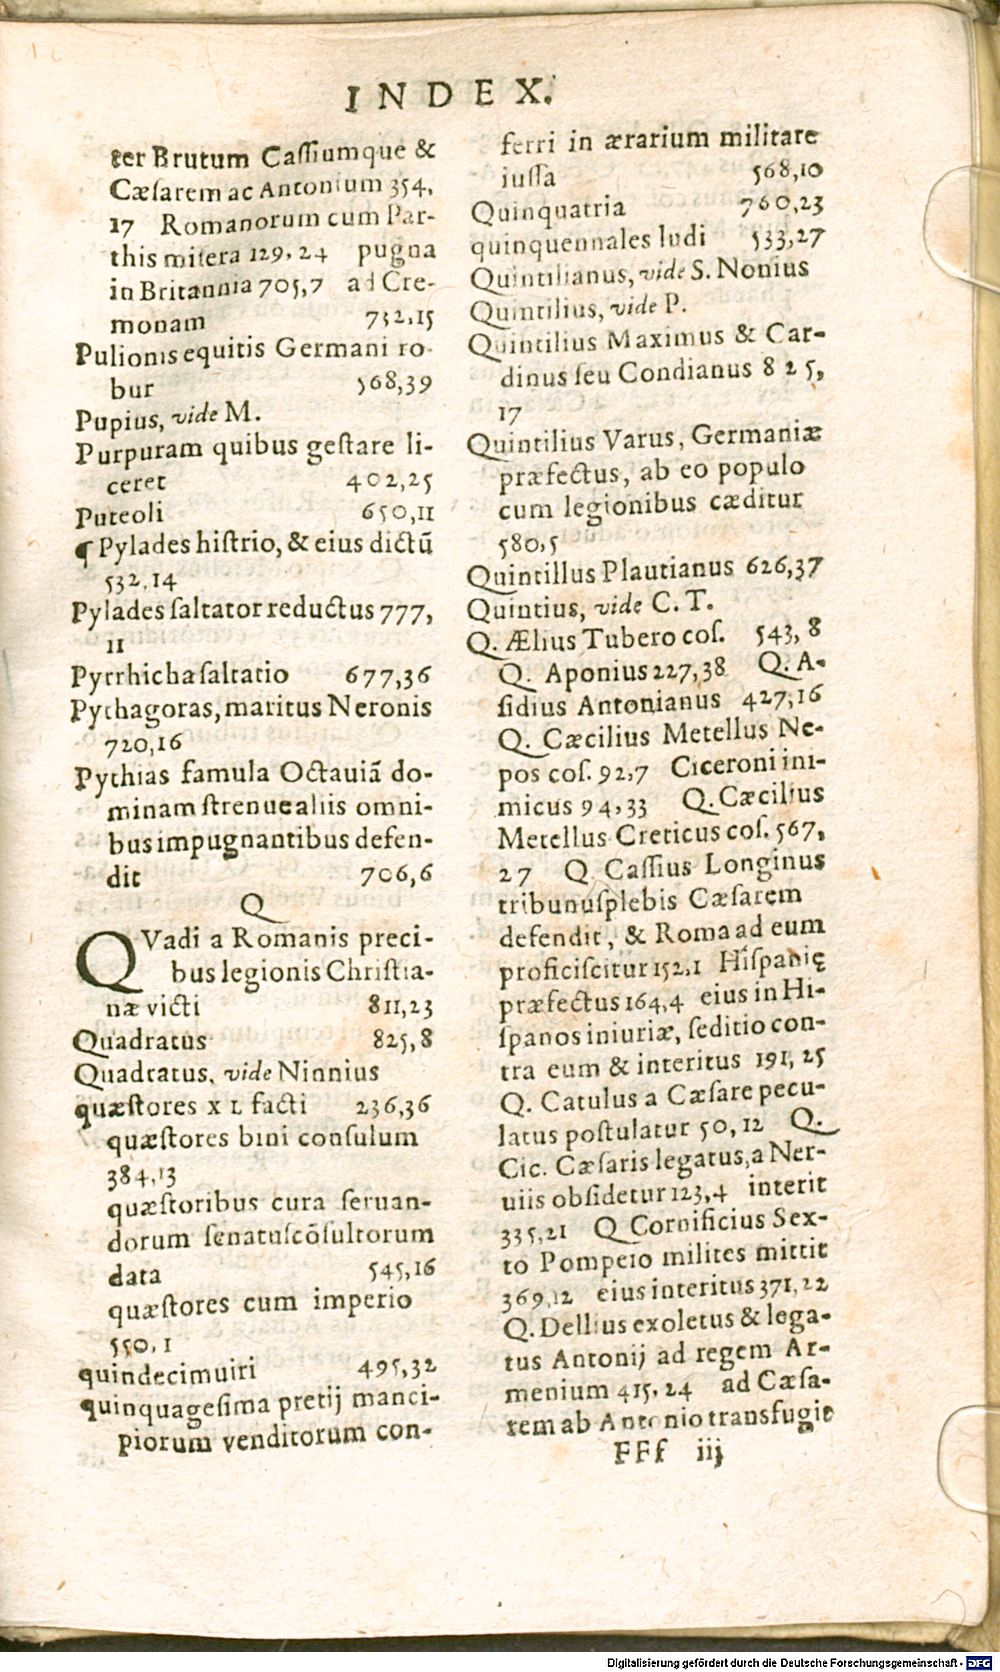 INDEX.
ter Brutum Caſſiumque &
Cæſarem ac Antonium 354,
17 Romanorum cum Par-
this miſera 129,24 pugna
in Britannia 705,7 ad Cre-
monam 732,15
Pulionis equitis Germani ro-
bur 568,39
Pupius, vide M.
Purpuram quibus geſtare li-
ceret 402,25
Puteoli 650,11
¶ Pylades hiſtrio, & eius dictũ
532,14
Pylades ſaltator reductus 777,
11
Pyrrhicha ſaltatio 677,36
Pythagoras, maritus Neronis
720,16
Pythias famula Octauiã do-
minam ſtrenue aliis omni-
bus impugnantibus defen-
dit 706,6
Q
QVadi a Romanis preci-
bus legionis Chriſtia-
næ victi 811,23
Quadratus 825,8
Quadratus, vide Ninnius
quæſtores XL facti 236,36
quæſtores bini conſulum
384,13
quæſtoribus cura ſeruan-
dorum ſenatuſcõſultorum
data 545,16
quæſtores cum imperio
550,1
quindecimuiri 495,32
quinquageſima pretij manci-
piorum venditorum con-
ferri in ærarium militare
iuſſa 568,10
Quinquatria 760,23
quinquennales ludi 533,27
Quintilianus, vide S. Nonius
Quintilius, vide P.
Quintilius Maximus & Car-
dinus ſeu Condianus 825,
17
Quintilius Varus, Germaniæ
præfectus, ab eo populo
cum legionibus cæditur
580,5
Quintillus Plautianus 626,37
Quintius, vide C. T.
Q. Ælius Tubero coſ. 543,8
Q. Aponius 227,38 Q. A-
ſidius Antonianus 427,16
Q. Cæcilius Metellus Ne-
pos coſ. 92,7 Ciceroni ini-
micus 94,33 Q. Cæcilius
Metellus Creticus coſ. 567,
27 Q. Caſſius Longinus
tribunuſplebis Cæſarem
defendit, & Roma ad eum
proficiſcitur 152,1 Hiſpanię
præfectus 164,4 eius in Hi-
ſpanos iniuriæ, ſeditio con-
tra eum & interitus 191,25
Q. Catulus a Cæſare pecu-
latus poſtulatur 50,12 Q.
Cic. Cæſaris legatus, a Ner-
uiis obſidetur 123,4 interit
335,21 Q Cornificius Sex-
to Pompeio milites mittit
369,12 eius interitus 371,22
Q. Dellius exoletus & lega-
tus Antonij ad regem Ar-
menium 415,24 ad Cæſa-
rem ab Antonio transfugit
FFf iij
Digitalisierung gefördert durch die Deutsche Forschungsgemeinschaft - DFG